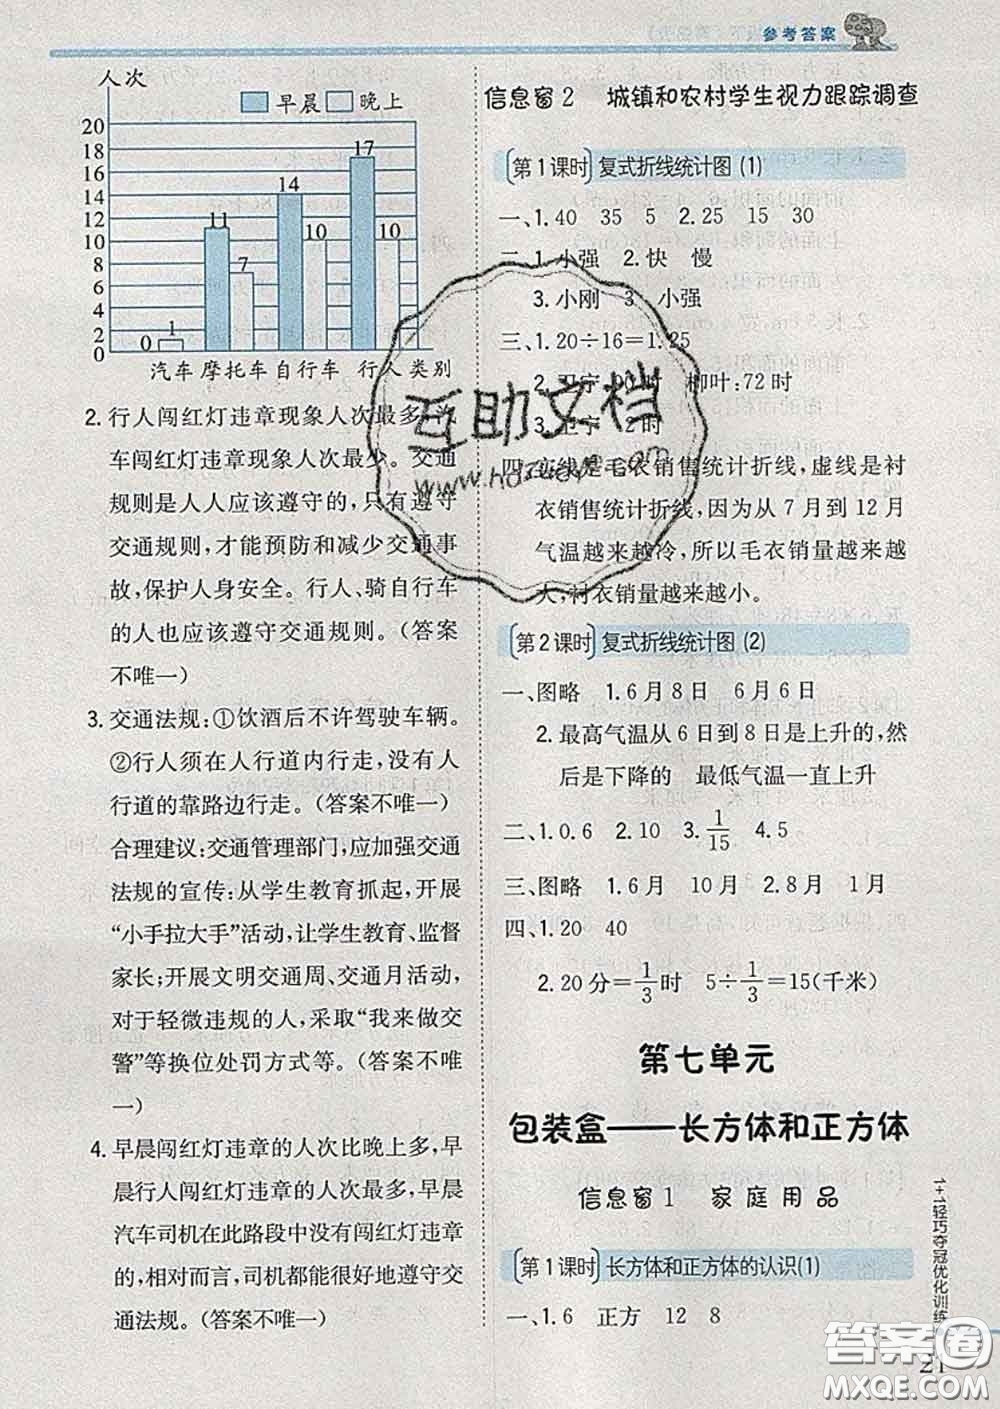 参考答案
人次
早晨 晚上
20
18
16
14
12
10
8
6
4
2
0
0 1 11 7 14 10 17 10
汽车 摩托车 自行车 行人 类别
2. 行人闯红灯违章现象人次最多,汽
车闯红灯违章现象人次最少。交通
规则是人人应该遵守的,只有遵守
交通规则,才能预防和减少交通事
故,保护人身安全。行人、骑自行车
的人也应该遵守交通规则。(答案
不唯一)
3. 交通法规:①饮酒后不许驾驶车辆。
②行人须在人行道内行走,没有人
行道的靠路边行走。(答案不唯一)
合理建议:交通管理部门,应加强交通
法规的宣传:从学生教育抓起,开展
“小手拉大手”活动,让学生教育、监督
家长;开展文明交通周、交通月活动,
对于轻微违规的人,采取“我来做交
警”等换位处罚方式等。(答案不唯
一)
4. 早晨闯红灯违章的人次比晚上多,早
晨行人闯红灯违章的人次最多,早晨
汽车司机在此路段中没有闯红灯违章
的,相对而言,司机都能很好地遵守交
通法规。(答案不唯一)
信息窗2 城镇和农村学生视力跟踪调查
第1课时 复式折线统计图(1)
一、1. 40 35 5 2. 25 15 30
二、1. 小强 2. 快 慢
3. 小刚 3 小强
三、1. 20÷16=1.25
2. 卫宁:90时 柳叶:72时
3. 卫宁 2时
四、实线是毛衣销售统计折线,虚线是衬
衣销售统计折线,因为从7月到12月
气温越来越冷,所以毛衣销量越来越
大,衬衣销量越来越小。
第2课时 复式折线统计图(2)
一、图略 1. 6月8日 6月6日
2. 最高气温从6日到8日是上升的,然
后是下降的 最低气温一直上升
二、1. 0.6 2. 10 3. 1/15 4. 5
三、图略 1. 6月 10月 2. 8月 1月
四、1. 20 40
2. 20分=1/3时 5÷1/3=15(千米)
第七单元
包装盒——长方体和正方体
信息窗1 家庭用品
第1课时 长方体和正方体的认识(1)
一、1. 6 正方 12 8
1+1轻巧夺冠优化训练
21
互助文档
答案圈
MXQE.COM